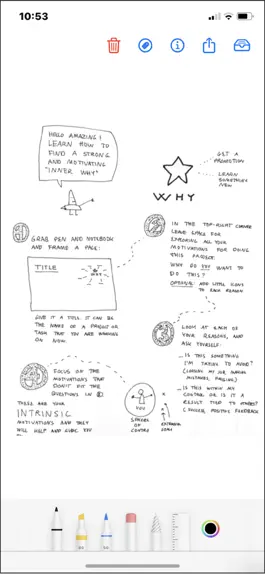 10:53
HELLO AMAZING!
LEARN HOW TO
FIND A STRONG
AND MOTIVATING
"INNER WHY"
GET A
PROMOTION
LEARN
SOMETHING
NEW
WHY
GRAB PEN AND NOTEBOOK
AND FRAME A PAGE:
TITLE
WHY
GIVE IT A TITLE. IT CAN BE
THE NAME OF A PROJECT OR
TASK THAT YOU ARE WORKING
ON NOW.
IN THE TOP-RIGHT CORNER
LEAVE SPACE FOR
EXPLORING ALL YOUR
MOTIVATIONS FOR DOING
THIS PROJECT.
WHY DO YOU WANT TO
DO THIS?
OPTIONAL: ADD LITTLE ICONS
TO EACH REASON
LOOK AT EACH OF
YOUR REASONS, AND
ASK YOURSELF:
IS THIS SOMETHING
I'M TRYING TO AVOID?
MISTAKES,
IS THIS WITHIN MY
CONTROL OR IS IT A
RESULT TIED TO OTHERS?
POSITIVE FEEDBACK
FOCUS ON THE
MOTIVATIONS THAT
DON'T FIT THE
QUESTIONS IN 3
THESE ARE YOUR
INTRINSIC
MOTIVATIONS AND THEY
WILL HELP AND GUIDE YOU
YOU
SPHERE
OF CONTROL